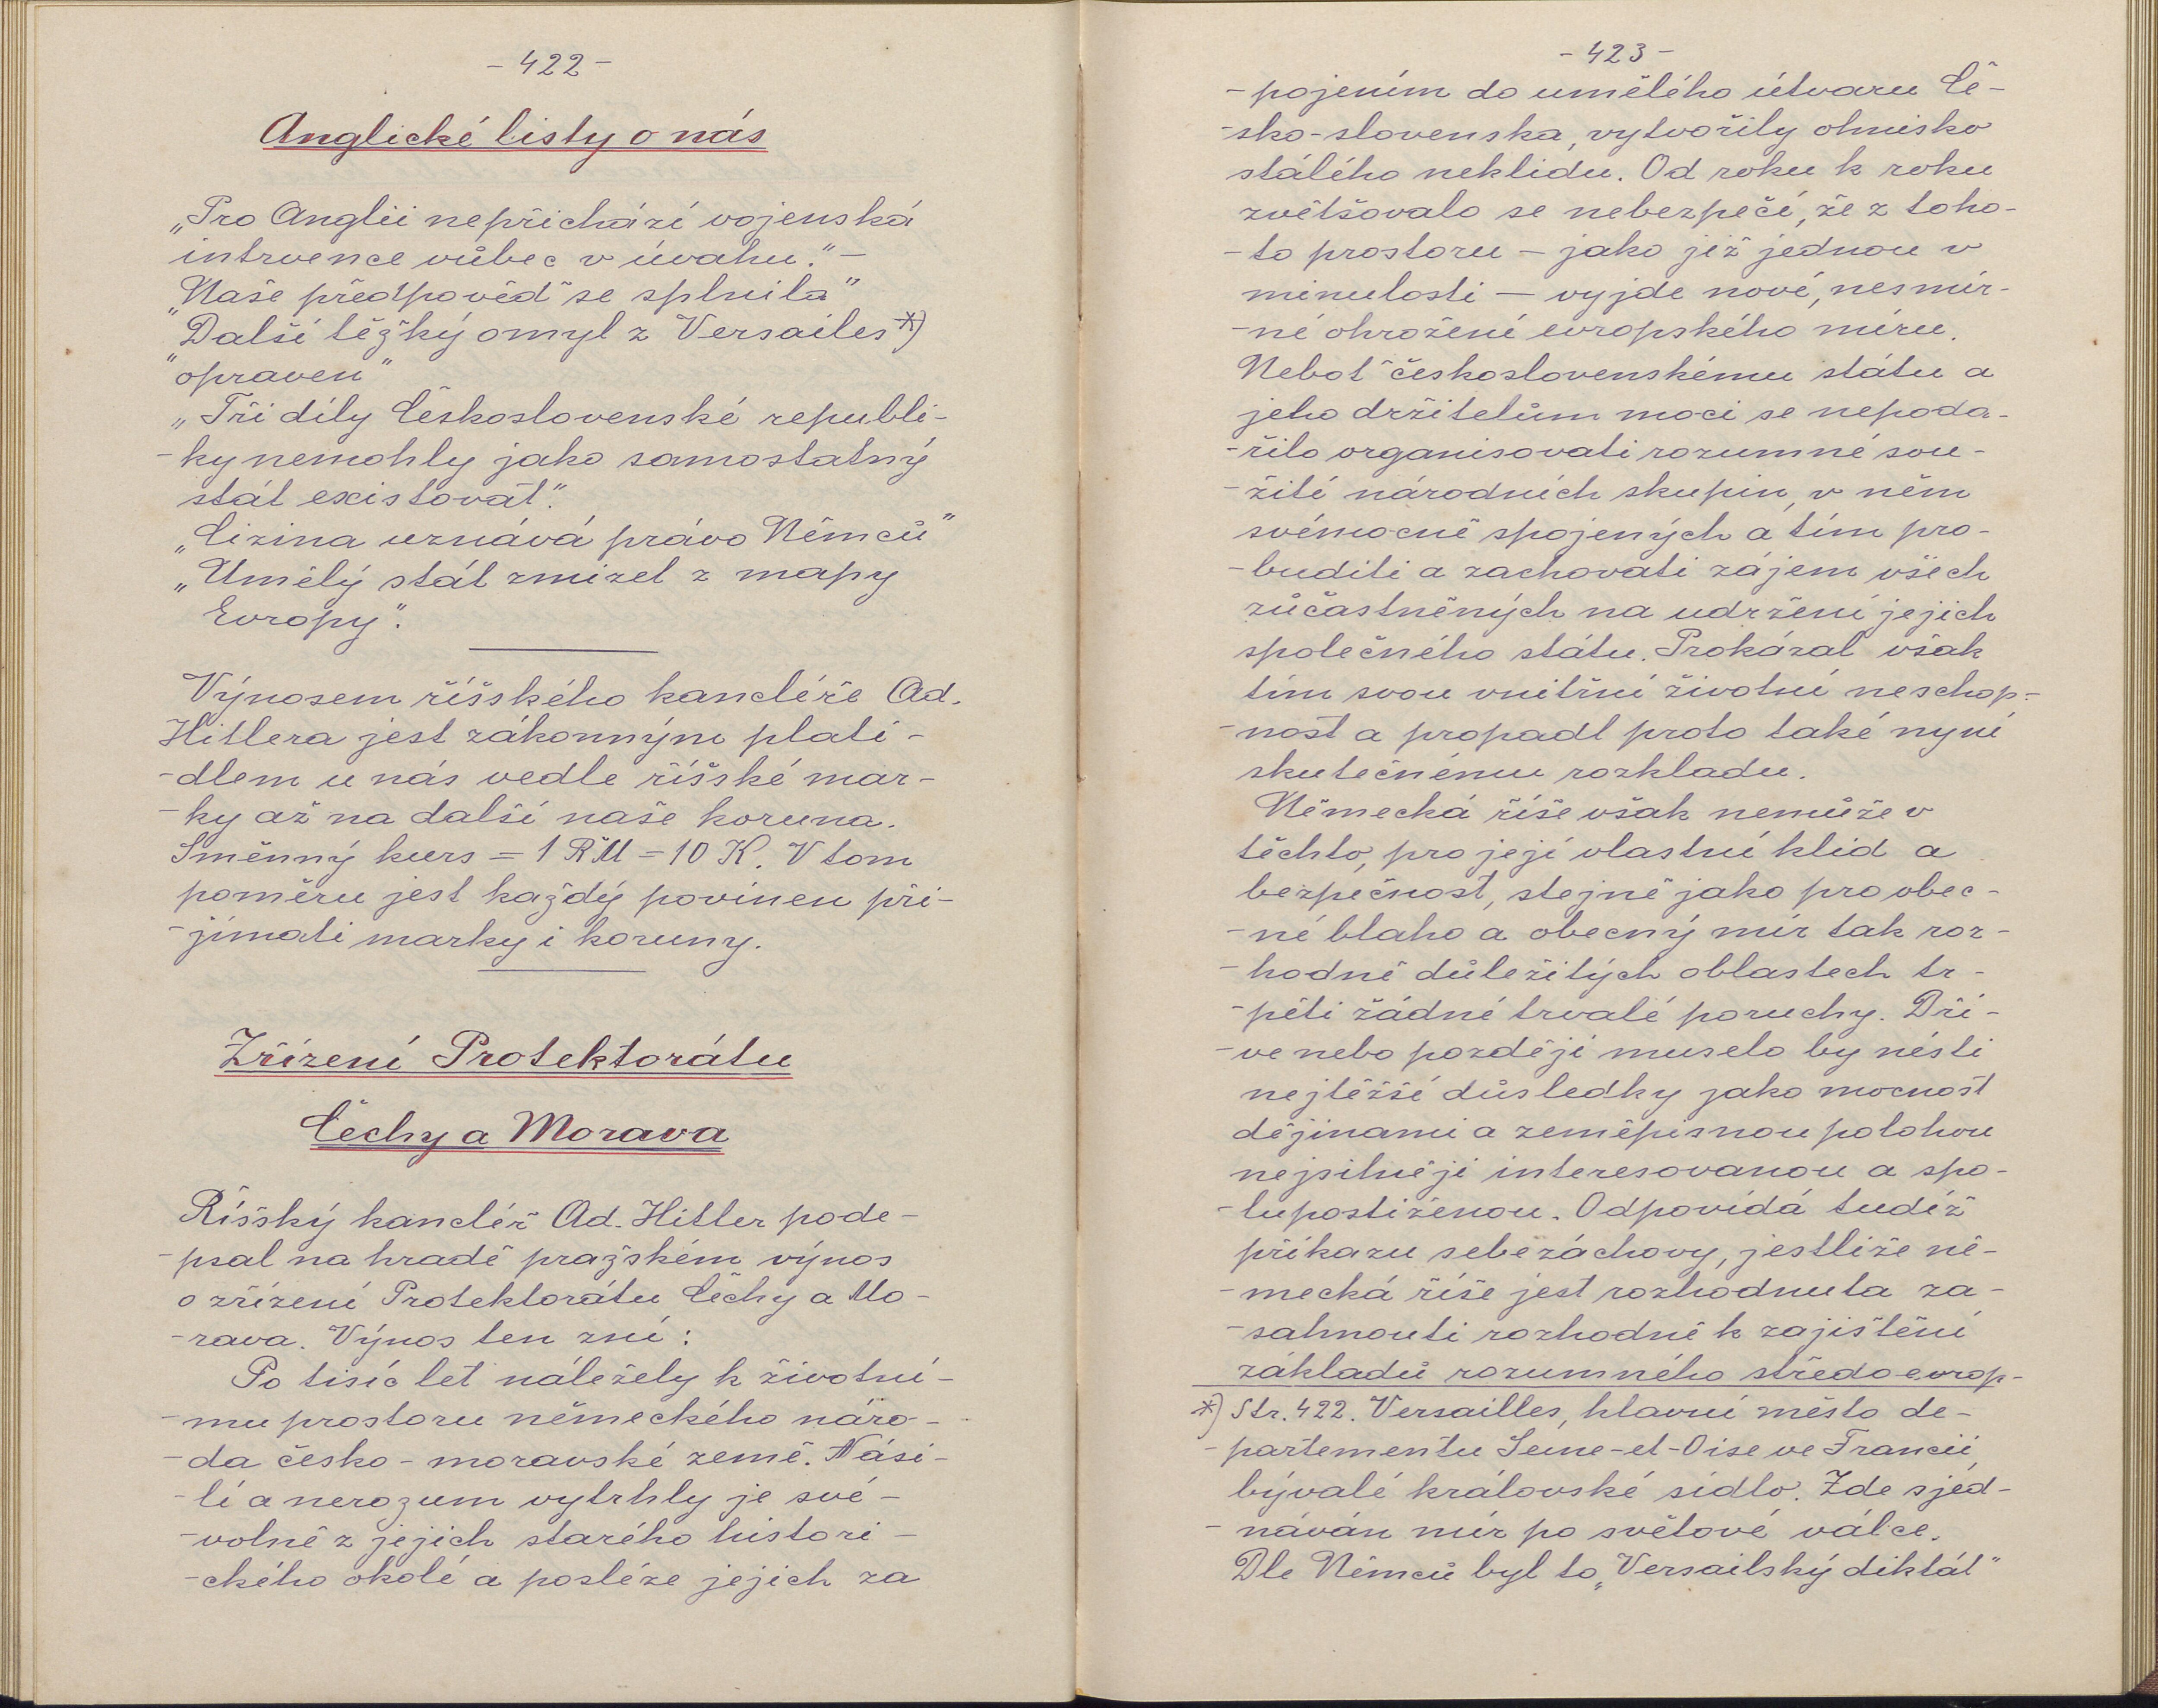 - 422 -
Anglické listy o nás
„Pro Anglii nepřichází vojenská
intrvence vůbec v úvahu." -
„Naše předpověď se splnila"
„Další těžký omyl z Versailes *)
opraven"
„Tři díly Československé republi-
-ky nemohly jako samostatný
stát existovat".
„Cizina uznává právo Němců"
„Umělý stát zmizel z mapy
Evropy".
Výnosem říšského kancléře Ad.
Hitlera jest zákonným plati-
-dlem u nás vedle říšské mar-
-ky až na další naše koruna.
Směnný kurs = 1 RM = 10 K. V tom
poměru jest každý povinen při-
-jímati marky i koruny.
Zřízení Protektorátu
Čechy a Morava
Říšský kancléř Ad. Hitler pode-
-psal na hradě pražském výnos
o zřízení Protektorátu Čechy a Mo-
-rava. Výnos ten zní:
Po tisíc let náležely k životní-
-mu prostoru německého náro-
-da česko-moravské země. Nási-
-lí a nerozum vytrhly je své-
-volně z jejich starého histori-
-ckého okolí a posléze jejich za
- 423 -
-pojením do umělého útvaru Če-
-sko-slovenska, vytvořily ohnisko
stálého neklidu. Od roku k roku
zvětšovalo se nebezpečí, že z toho-
-to prostoru - jako již jednou v
minulosti - vyjde nové, nesmír-
-né ohrožení evropského míru.
Neboť československému státu a
jeho držitelům moci se nepoda-
-řilo organisovati rozumné sou-
-žití národních skupin, v něm
svémocně spojených a tím pro-
-buditi a zachovati zájem všech
zůčastněných na udržení jejich
společného státu. Prokázal však
tím svou vnitřní životní neschop-
-nost a propadl proto také nyní
skutečnému rozkladu.
Německá říše však nemůže v
těchto, pro její vlastní klid a
bezpečnost, stejně jako pro obec-
-né blaho a obecný mír tak roz-
-hodně důležitých oblastech tr-
-pěti žádné trvalé poruchy. Dří-
-ve nebo později muselo by nésti
nejtěžší důsledky jako mocnost
dějinami a zeměpisnou polohou
nejsilněji interesovanou a spo-
-lupostiženou. Odpovídá tudíž
příkazu sebezáchovy, jestliže ně-
-mecká říše jest rozhodnuta za-
-sahnouti rozhodně k zajištění
základů rozumného středoevrop-
*) Str. 422. Versailles, hlavní město de-
-partementu Seine-et-Oise ve Francii,
bývalé královské sídlo. Zde sjed-
-náván mír po světové válce.
Dle Němců byl to „Versailský diktát"